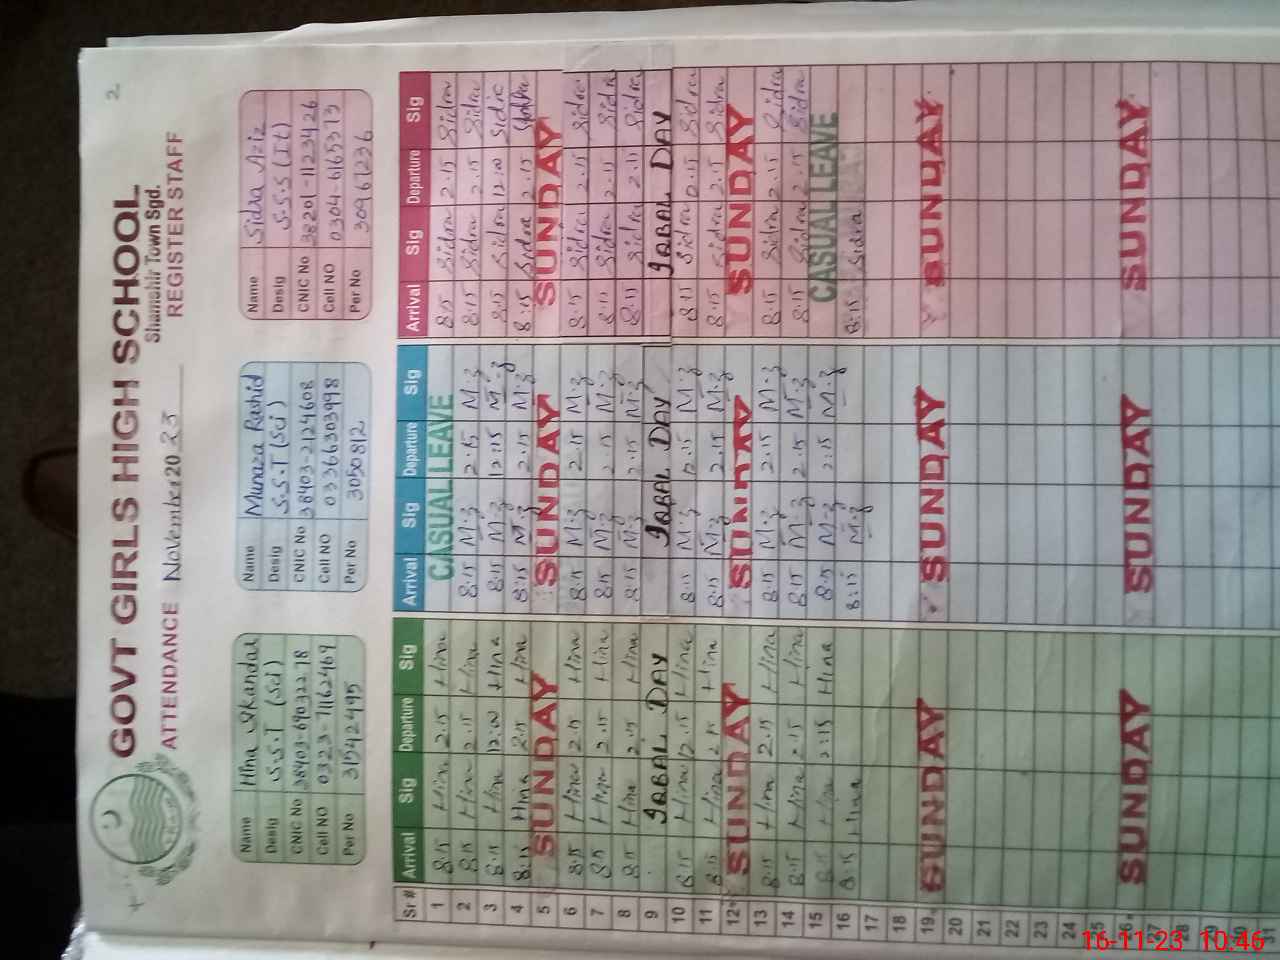 2
GOVT GIRLS HIGH SCHOOL
Shamshir Town Sgd.
ATTENDANCE November 2023 REGISTER STAFF
Name Hina Sikandar Name Munaza Rashid Name Sidra Aziz
Desig S.S.T (Sci) Desig S.S.T (Sci) Desig S.S.S (It)
CNIC No CNIC No 38403-2124608 CNIC No 38201-1123426
Cell NO 0323-7162469 Cell NO 03366303998 Cell NO 0304-6165313
Per No 31542495 Per No 3050812 Per No 30961236
Sr # Arrival Sig Departure Sig Arrival Sig Departure Sig Arrival Sig Departure Sig
1 8:15 Hina 2.15 Hina CASUAL LEAVE 8:15 Sidra 2.15 Sidra
2 8:15 Hina 2.15 Hina 8:15 M.z 2.15 M.z 8:15 Sidra 2.15 Sidra
3 8:15 Hina 12:00 Hina 8:15 M.z 12:15 M.z 8:15 Sidra 12:00 Sidra
4 8:15 Hina 2:15 Hina 8:15 M.z 2.15 M.z 8:15 Sidra 2.15 Sidra
5 SUNDAY SUNDAY SUNDAY
6 8:15 Hina 2.15 Hina 8:15 M.z 2.15 M.z 8:15 Sidra 2.15 Sidra
7 8:15 Hina 2.15 Hina 8:15 M.z 2.15 M.z 8:15 Sidra 2.15 Sidra
8 8:15 Hina 2.15 Hina 8:15 M.z 2.15 M.z 8:15 Sidra 2.15 Sidra
9 IQBAL DAY IQBAL DAY IQBAL DAY
10 8:15 Hina 12.15 Hina 8:15 M.z 12.15 M.z 8:15 Sidra 12.15 Sidra
11 8:15 Hina 2.15 Hina 8:15 M.z 2.15 M.z 8:15 Sidra 2.15 Sidra
12 SUNDAY SUNDAY SUNDAY
13 8:15 Hina 2.15 Hina 8:15 M.z 2.15 M.z 8:15 Sidra 2.15 Sidra
14 8:15 Hina 2.15 Hina 8:15 M.z 2.15 M.z 8:15 Sidra 2.15 Sidra
15 8:15 Hina 2:15 Hina 8:15 M.z 2:15 M.z CASUAL LEAVE
16 8:15 Hina 8:15 M.z 8:15 Sidra
17
18
19 SUNDAY SUNDAY SUNDAY
20
21
22
23
24
25
26 SUNDAY SUNDAY SUNDAY
27
28
29
30
31
16-11-23 10:46